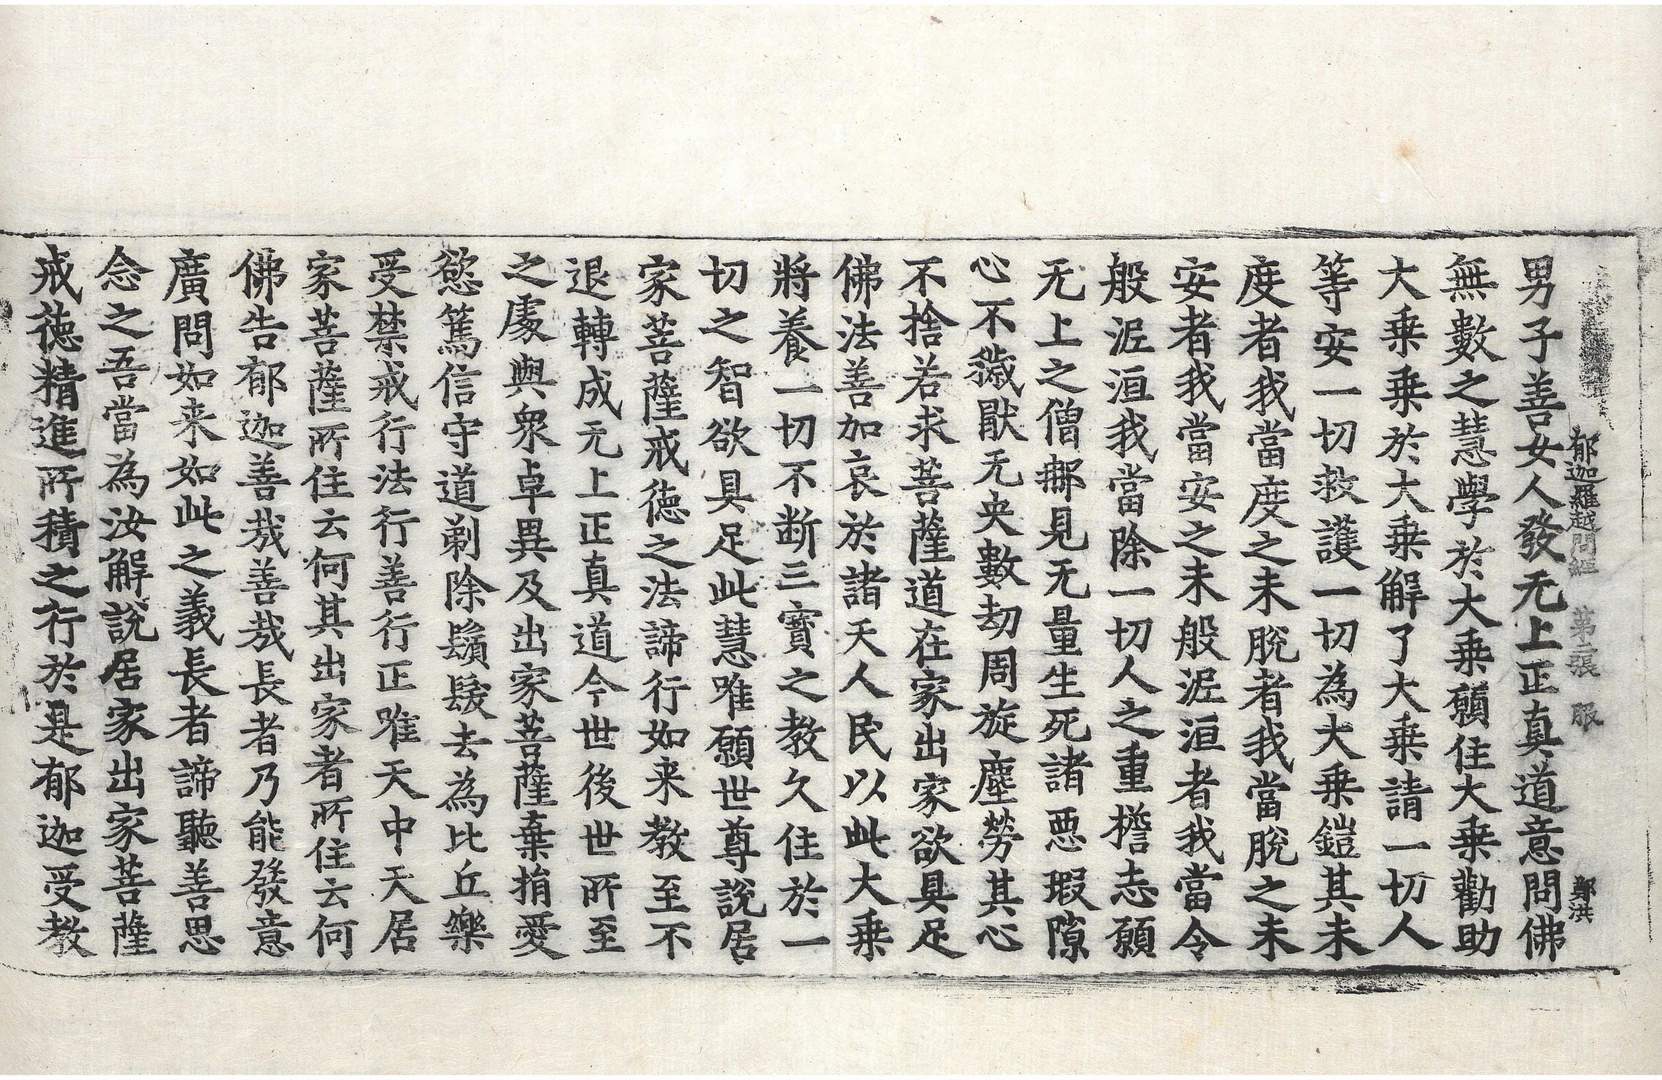 郁迦羅越問經 第二張 服 鄭洪
男子善女人發无上正真道意問佛
無數之慧學於大乗願住大乗勸助
大乗乗於大乗解了大乗請一切人
等安一切救護一切為大乗鎧其未
度者我當度之未脫者我當脫之未
安者我當安之未般泥洹者我當令
般泥洹我當除一切人之重擔志願
无上之僧那見无量生死諸惡瑕隙
心不穢猒无央數劫周旋塵勞其心
不捨若求菩薩道在家出家欲具足
佛法善加哀於諸天人民以此大乗
將養一切不断三寳之教久住於一
切之智欲具足此慧唯願世尊說居
家菩薩戒德之法諦行如来教至不
退轉成无上正真道今世後世所至
之處與衆卓異及出家菩薩棄捐愛
慾篤信守道剃除鬚髮去為比丘樂
受禁戒行法行善行正唯天中天居
家菩薩所住云何其出家者所住云何
佛告郁迦善哉善哉長者乃能發意
廣問如来如此之義長者諦聽善思
念之吾當為汝解說居家出家菩薩
戒德精進所積之行於是郁迦受教